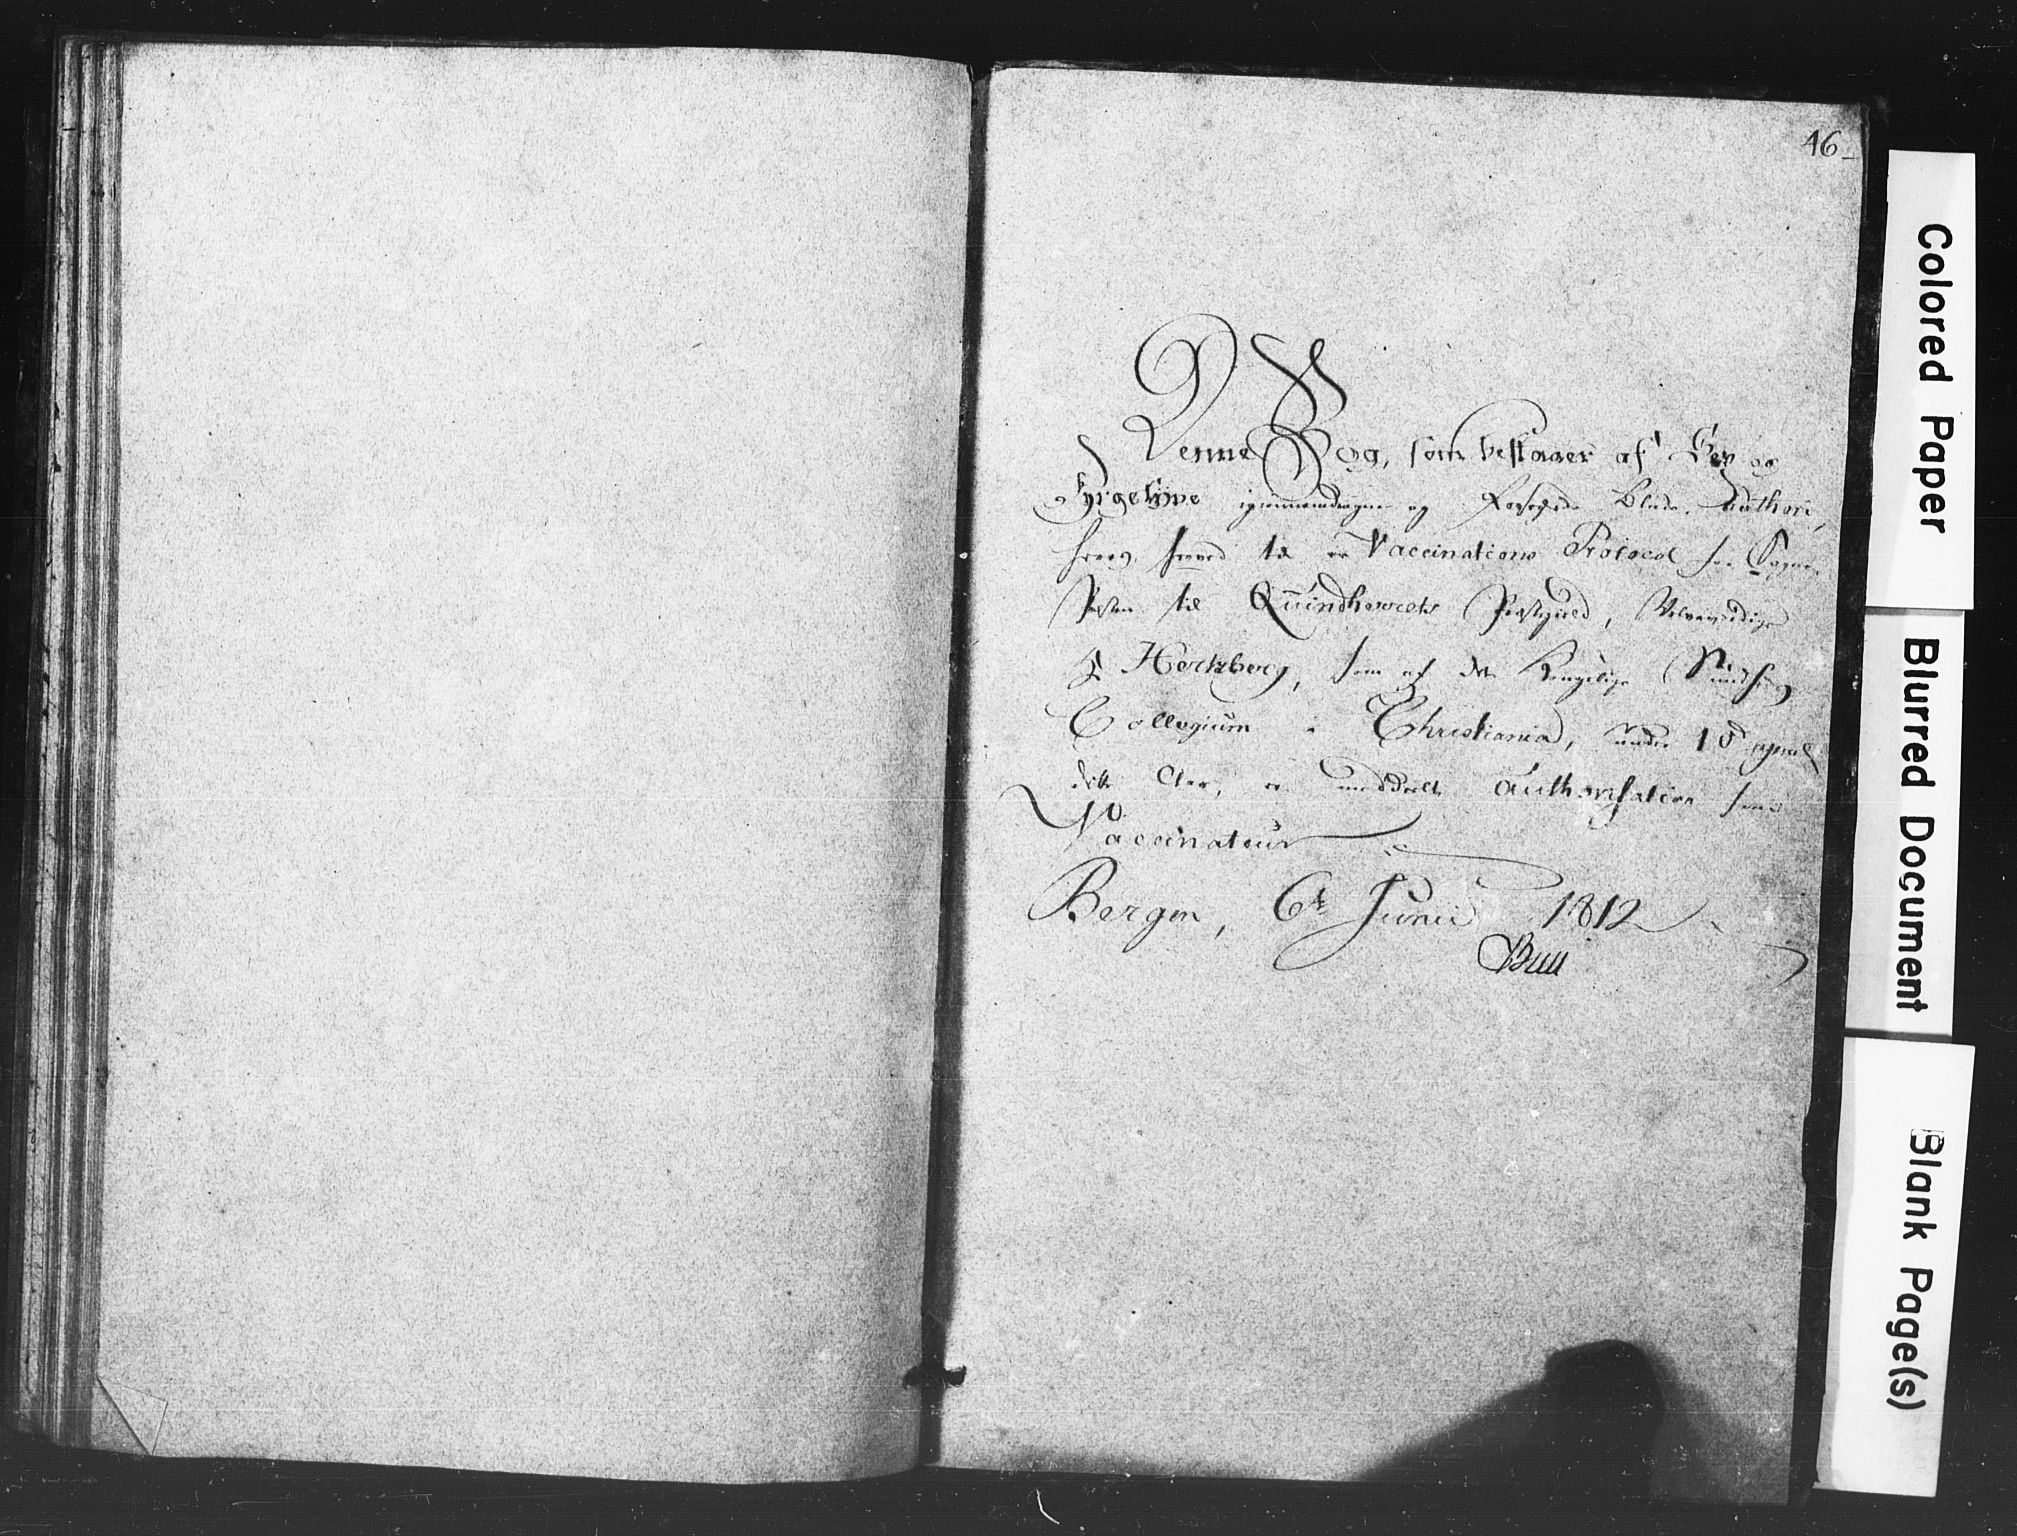 46
Denne Bog, som bestaaer af Sex og
Fyrgetyve igiennemdragne og Forseglede Blade, authori,
seres herved til en Vaccinations Protocol for Sogne,
Præsten til Quindherreds Præstegield, Velærværdige
Hr Hertzberg, som af det Kongelige Sundheds
Collegium i Christiania, under 18 april
dette Aar, er meddeelt Authorisation som
Vaccinateur
Bergen, 6te Junii 1812
Bull
Colored Paper
Blurred Document
Blank Page(s)